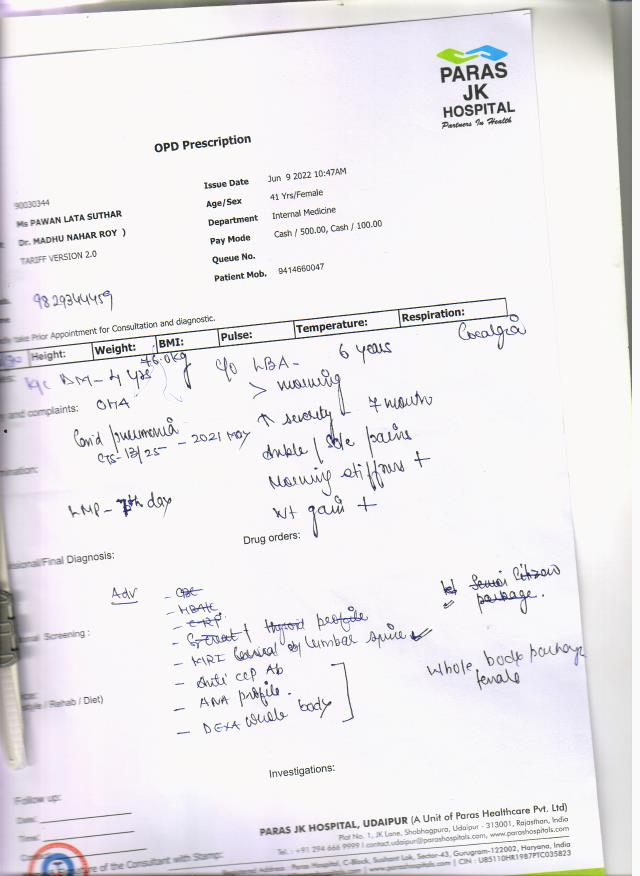 PARAS
JK
HOSPITAL
Partners In Health
OPD Prescription
90030344
Ms PAWAN LATA SUTHAR
Dr. MADHU NAHAR ROY )
TARIFF VERSION 2.0
Issue Date Jun 9 2022 10:47AM
Age/Sex 41 Yrs/Female
Department Internal Medicine
Pay Mode Cash / 500.00, Cash / 100.00
Queue No.
Patient Mob. 9414660047
9829344459
take Prior Appointment for Consultation and diagnostic.
Height: Weight: BMI: Pulse: Temperature: Respiration:
76.0kg
K/c DM - 4 yrs c/o LBA - 6 years
> morning
and complaints: OHA
↑ severity - 7 month
Covid pneumonia
CTS- 13/25 - 2021 MAY
Ankle / sole pains
Morning stiffness +
LMP - 7th day
Wt gain +
Drug orders:
Final Diagnosis:
Adv - CBC
- HbA1c
- CRP
Senior Citizen
package.
Screening :
thyroid profile
- MRI Cervical Lumbar spine ✓
- Anti CCP Ab
- ANA profile.
- DEXA whole body
whole body package
female
style / Rehab / Diet)
Investigations:
Follow up:
Date:
Time:
Signature of the Consultant with Stamp:
PARAS JK HOSPITAL, UDAIPUR (A Unit of Paras Healthcare Pvt. Ltd)
Plot No. 1, JK Lane, Shobhagpura, Udaipur - 313001, Rajasthan, India
Tel. : +91 294 666 9999 | contact.udaipur@parashospitals.com, www.parashospitals.com
Registered Address : Paras Hospital, C-Block, Sushant Lok, Sector-43, Gurugram-122002, Haryana, India
www.parashospitals.com | CIN : U85110HR1987PTC035823